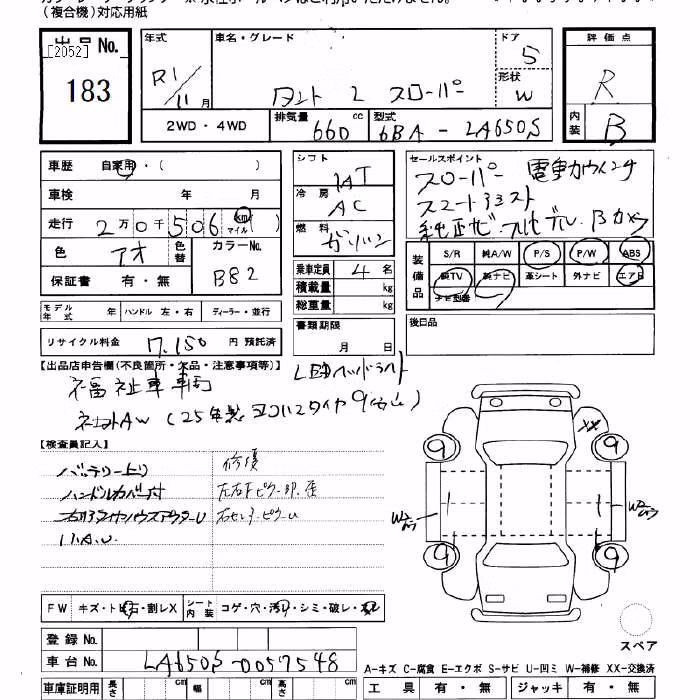 (複合機)対応用紙
出品No.
[2052]
183
年式
R1/11月
車名・グレード
タント 2 スローパー
ドア
5
形状
W
評価点
R
内装
B
2WD・4WD
排気量 660 cc
型式 6BA-LA650S
車歴 自家用・( )
車検 年 月
走行 2万0千506 km マイル
色 アオ 色替
カラーNo. B82
保証書 有・無
シフト IAT
冷房 AC
燃料 ガソリン
乗車定員 4名
積載量 kg
総重量 kg
書類期限
月 日
セールスポイント
スローパー 電動カウインチ
スマートアシスト
純正ナビ・フルセグ・Bカメラ
装備品
S/R 純A/W P/S P/W ABS
純TV 純ナビ 革シート 外ナビ エアB
ナビ型番
後日品
モデル年式 年 ハンドル 左・右 ディーラー・並行
リサイクル料金 7,150 円 預託済
【出品店申告欄(不良箇所・欠品・注意事項等)】
LEDヘッドライト
福祉車両
社外AW(25年製ヨコハマタイヤ9分山)
【検査員記入】
バッテリー上り
ハンドルカバー付
右リアタイヤハウスアウターU
U.A.W
修復
左右Fピラー
右センターピラーU
9
9
9
9
XX
W2
W2
FW キズ・ト石・割レX
シート内装 コゲ・穴・汚レ・シミ・破レ・スレ
登録No.
車台No. LA650S-0057548
車庫証明用 長さ cm 幅 cm 高さ cm
スペア
A-キズ C-腐食 E-エクボ S-サビ U-凹ミ W-補修 XX-交換済
工具 有・無 ジャッキ 有・無